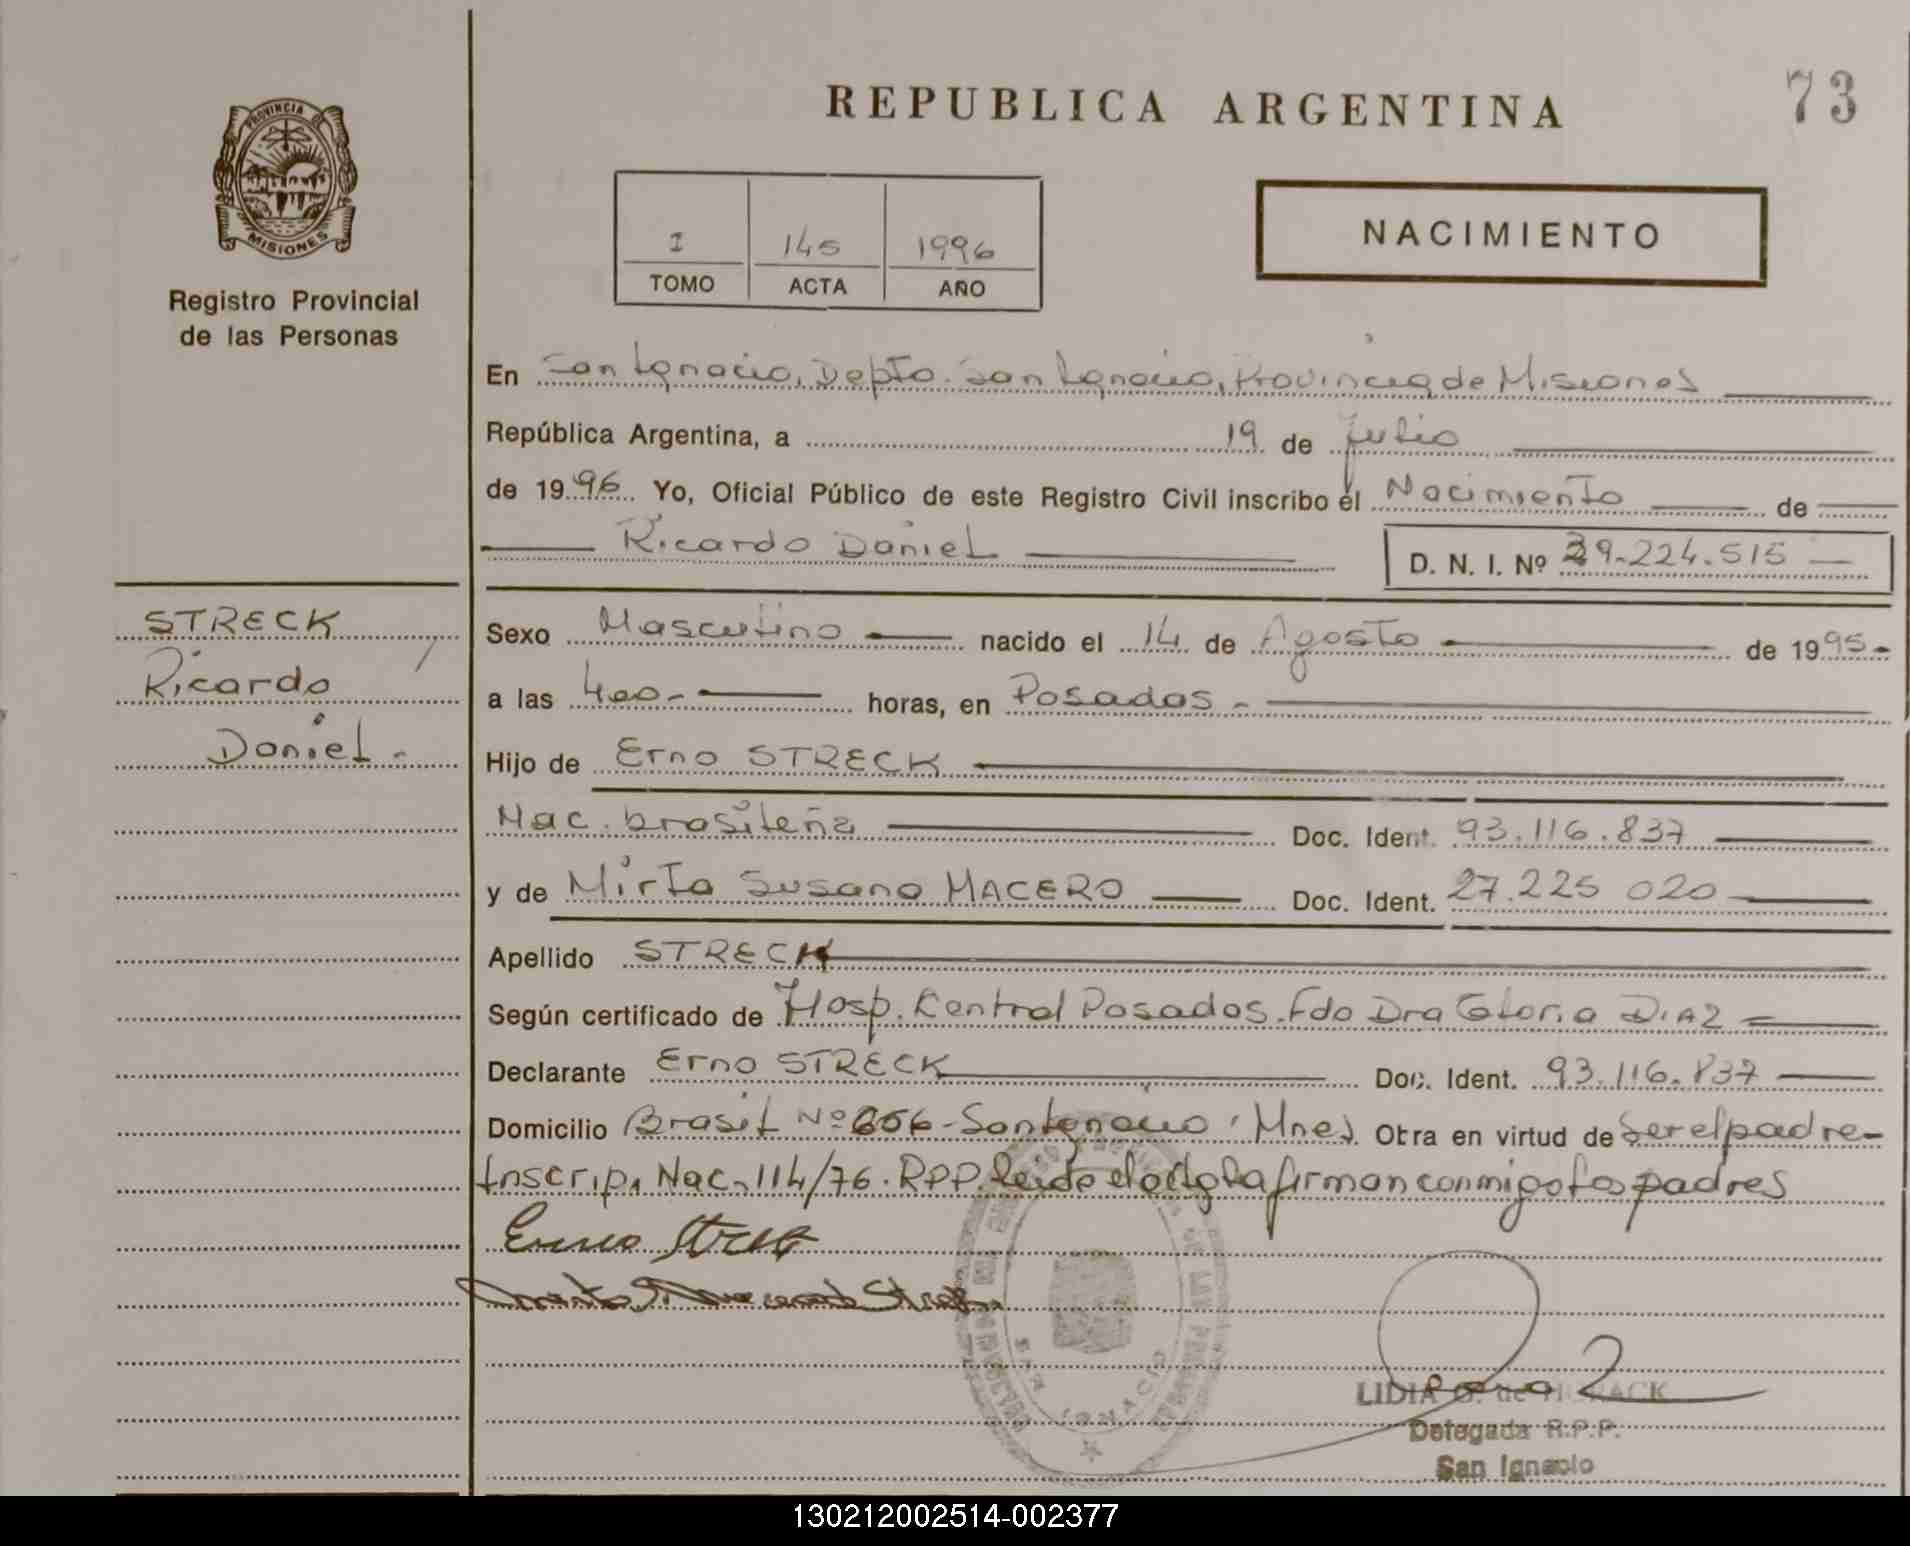 73
REPUBLICA ARGENTINA
PROVINCIA DE
MISIONES
Registro Provincial
de las Personas
I 145 1996
TOMO ACTA AÑO
NACIMIENTO
En San Ignacio, Depto. San Ignacio, Provincia de Misiones
República Argentina, a 19 de Julio
de 1996 Yo, Oficial Público de este Registro Civil inscribo el Nacimiento de
Ricardo Daniel D. N. I. Nº 39.224.515
STRECK
Ricardo
Daniel.
Sexo Masculino nacido el 14 de Agosto de 1995
a las 400 horas, en Posadas
Hijo de Erno STRECK
Nac. brasileña Doc. Ident. 93.116.837
y de Mirta Susana MACERO Doc. Ident. 27.225 020
Apellido STRECK
Según certificado de Hosp. Central Posadas. Fdo Dra Gloria DIAZ
Declarante Erno STRECK Doc. Ident. 93.116.837
Domicilio Brasil Nº 606 - San Ignacio, Mnes. Obra en virtud de ser el padre
Inscrip. Nac. 114/76. RPP. leida el acta la firman conmigo los padres
SAN IGNACIO
LIDIA
Delegada R.P.P.
San Ignacio
130212002514-002377